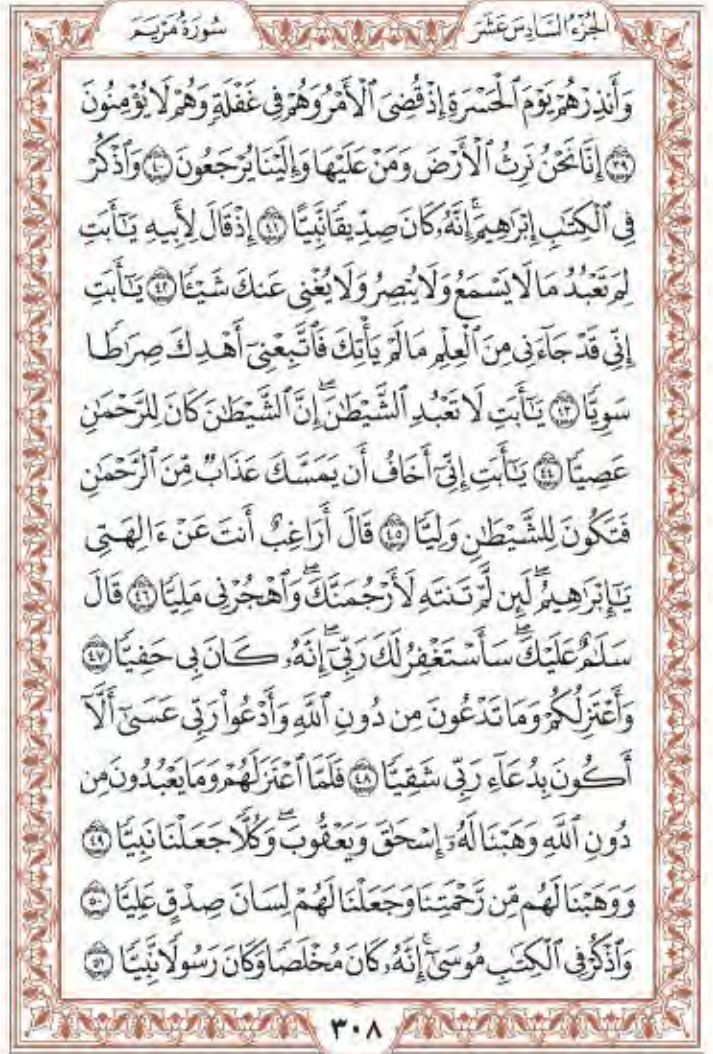 الجُزْءُ السَّادِسَ عَشَرَ سُورَةُ مَرْيَمَ
وَأَنذِرْهُمْ يَوْمَ ٱلْحَسْرَةِ إِذْ قُضِىَ ٱلْأَمْرُ وَهُمْ فِى غَفْلَةٍ وَهُمْ لَا يُؤْمِنُونَ
٣٩ إِنَّا نَحْنُ نَرِثُ ٱلْأَرْضَ وَمَنْ عَلَيْهَا وَإِلَيْنَا يُرْجَعُونَ ٤٠ وَٱذْكُرْ
فِى ٱلْكِتَٰبِ إِبْرَٰهِيمَۚ إِنَّهُۥ كَانَ صِدِّيقًا نَّبِيًّا ٤١ إِذْ قَالَ لِأَبِيهِ يَٰٓأَبَتِ
لِمَ تَعْبُدُ مَا لَا يَسْمَعُ وَلَا يُبْصِرُ وَلَا يُغْنِى عَنكَ شَيْـًٔا ٤٢ يَٰٓأَبَتِ
إِنِّى قَدْ جَآءَنِى مِنَ ٱلْعِلْمِ مَا لَمْ يَأْتِكَ فَٱتَّبِعْنِىٓ أَهْدِكَ صِرَٰطًا
سَوِيًّا ٤٣ يَٰٓأَبَتِ لَا تَعْبُدِ ٱلشَّيْطَٰنَۖ إِنَّ ٱلشَّيْطَٰنَ كَانَ لِلرَّحْمَٰنِ
عَصِيًّا ٤٤ يَٰٓأَبَتِ إِنِّىٓ أَخَافُ أَن يَمَسَّكَ عَذَابٌ مِّنَ ٱلرَّحْمَٰنِ
فَتَكُونَ لِلشَّيْطَٰنِ وَلِيًّا ٤٥ قَالَ أَرَاغِبٌ أَنتَ عَنْ ءَالِهَتِى
يَٰٓإِبْرَٰهِيمُۖ لَئِن لَّمْ تَنتَهِ لَأَرْجُمَنَّكَۖ وَٱهْجُرْنِى مَلِيًّا ٤٦ قَالَ
سَلَٰمٌ عَلَيْكَۖ سَأَسْتَغْفِرُ لَكَ رَبِّىٓۖ إِنَّهُۥ كَانَ بِى حَفِيًّا ٤٧
وَأَعْتَزِلُكُمْ وَمَا تَدْعُونَ مِن دُونِ ٱللَّهِ وَأَدْعُوا۟ رَبِّى عَسَىٰٓ أَلَّآ
أَكُونَ بِدُعَآءِ رَبِّى شَقِيًّا ٤٨ فَلَمَّا ٱعْتَزَلَهُمْ وَمَا يَعْبُدُونَ مِن
دُونِ ٱللَّهِ وَهَبْنَا لَهُۥٓ إِسْحَٰقَ وَيَعْقُوبَۖ وَكُلًّا جَعَلْنَا نَبِيًّا ٤٩
وَوَهَبْنَا لَهُم مِّن رَّحْمَتِنَا وَجَعَلْنَا لَهُمْ لِسَانَ صِدْقٍ عَلِيًّا ٥٠
وَٱذْكُرْ فِى ٱلْكِتَٰبِ مُوسَىٰٓۚ إِنَّهُۥ كَانَ مُخْلَصًا وَكَانَ رَسُولًا نَّبِيًّا ٥١
٣٠٨